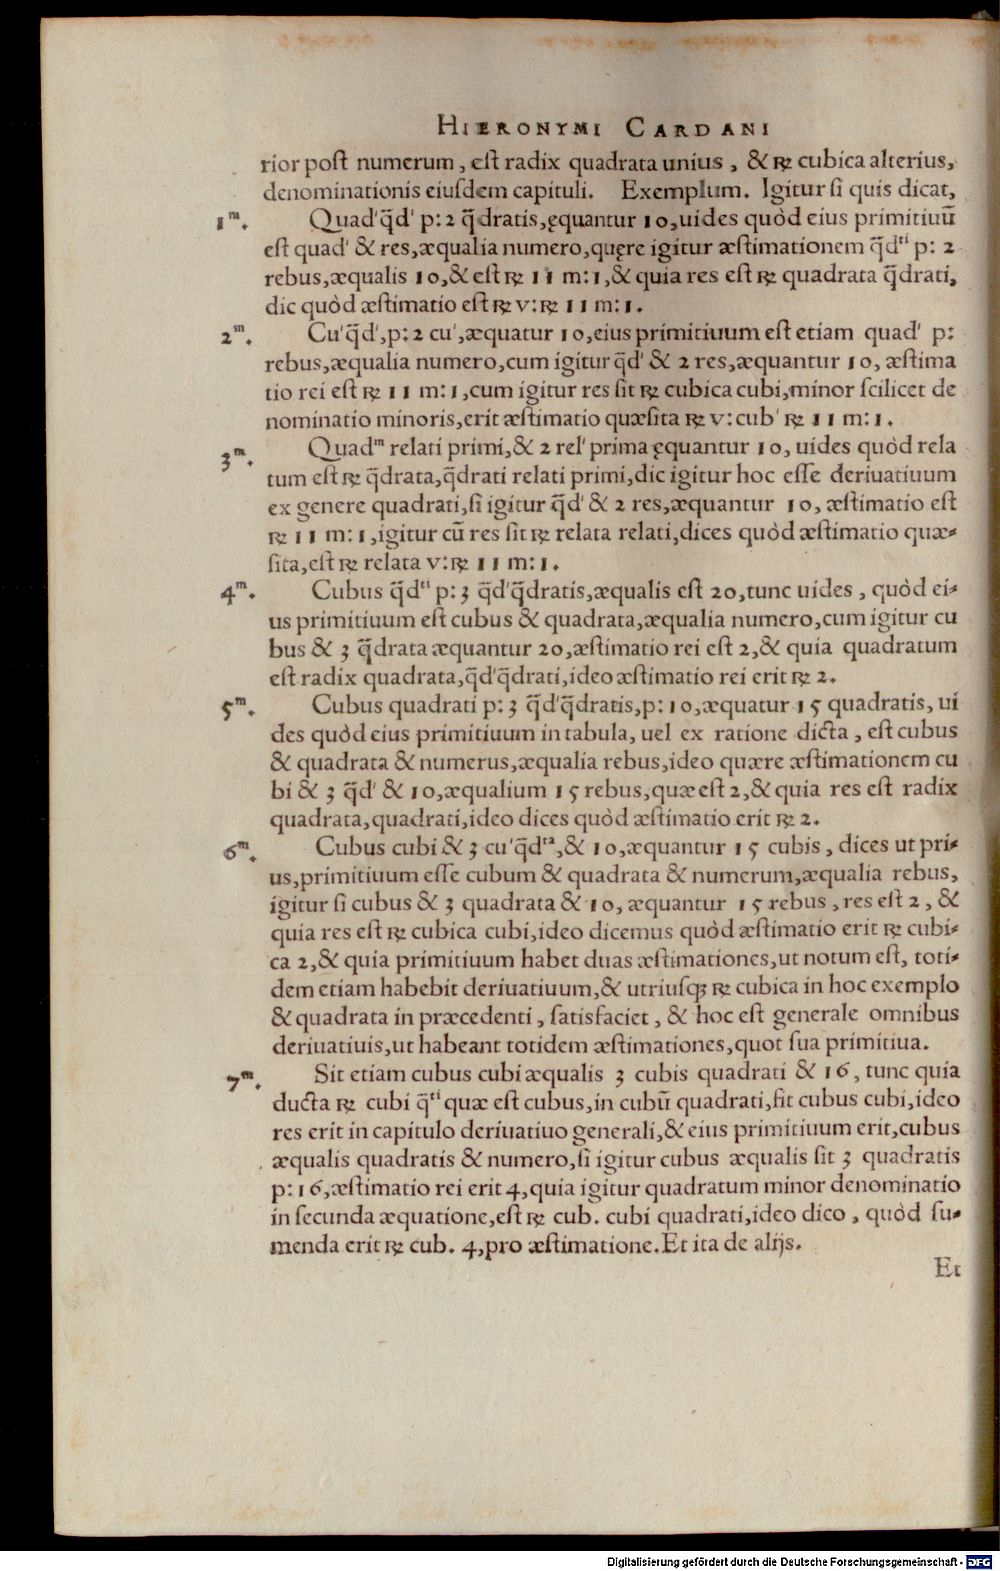 HIERONYMI CARDANI
rior post numerum, est radix quadrata unius, & ℞ cubica alterius,
denominationis eiusdem capituli. Exemplum. Igitur si quis dicat,
1ᵐ. Quad' q̃d' p: 2 q̃dratis, ęquantur 10, uides quòd eius primitiuũ
est quad' & res, æqualia numero, quęre igitur æstimationem q̃dᵗⁱ p: 2
rebus, æqualis 10, & est ℞ 11 m: 1, & quia res est ℞ quadrata q̃drati,
dic quòd æstimatio est ℞ v: ℞ 11 m: 1.
2ᵐ. Cu' q̃d', p: 2 cu', æquatur 10, eius primitiuum est etiam quad' p:
rebus, æqualia numero, cum igitur q̃d' & 2 res, æquantur 10, æstima
tio rei est ℞ 11 m: 1, cum igitur res sit ℞ cubica cubi, minor scilicet de
nominatio minoris, erit æstimatio quæsita ℞ v: cub' ℞ 11 m: 1.
3ᵐ. Quadᵐ relati primi, & 2 rel' prima ęquantur 10, uides quòd rela
tum est ℞ q̃drata, q̃drati relati primi, dic igitur hoc esse deriuatiuum
ex genere quadrati, si igitur q̃d' & 2 res, æquantur 10, æstimatio est
℞ 11 m: 1, igitur cũ res sit ℞ relata relati, dices quòd æstimatio quæ-
sita, est ℞ relata v: ℞ 11 m: 1.
4ᵐ. Cubus q̃dᵗⁱ p: 3 q̃d'q̃dratis, æqualis est 20, tunc uides, quòd ei-
us primitiuum est cubus & quadrata, æqualia numero, cum igitur cu
bus & 3 q̃drata æquantur 20, æstimatio rei est 2, & quia quadratum
est radix quadrata, q̃d'q̃drati, ideo æstimatio rei erit ℞ 2.
5ᵐ. Cubus quadrati p: 3 q̃d'q̃dratis, p: 10, æquatur 15 quadratis, ui
des quòd eius primitiuum in tabula, uel ex ratione dicta, est cubus
& quadrata & numerus, æqualia rebus, ideo quære æstimationem cu
bi & 3 q̃d' & 10, æqualium 15 rebus, quæ est 2, & quia res est radix
quadrata, quadrati, ideo dices quòd æstimatio erit ℞ 2.
6ᵐ. Cubus cubi & 3 cu'q̃dᵗᵃ, & 10, æquantur 15 cubis, dices ut pri-
us, primitiuum esse cubum & quadrata & numerum, æqualia rebus,
igitur si cubus & 3 quadrata & 10, æquantur 15 rebus, res est 2, &
quia res est ℞ cubica cubi, ideo dicemus quòd æstimatio erit ℞ cubi-
ca 2, & quia primitiuum habet duas æstimationes, ut notum est, toti-
dem etiam habebit deriuatiuum, & utriusqꝫ ℞ cubica in hoc exemplo
& quadrata in præcedenti, satisfaciet, & hoc est generale omnibus
deriuatiuis, ut habeant totidem æstimationes, quot sua primitiua.
7ᵐ. Sit etiam cubus cubi æqualis 3 cubis quadrati & 16, tunc quia
ducta ℞ cubi q̃ᵗⁱ quæ est cubus, in cubũ quadrati, fit cubus cubi, ideo
res erit in capitulo deriuatiuo generali, & eius primitiuum erit, cubus
æqualis quadratis & numero, si igitur cubus æqualis sit 3 quadratis
p: 16, æstimatio rei erit 4, quia igitur quadratum minor denominatio
in secunda æquatione, est ℞ cub. cubi quadrati, ideo dico, quòd su-
menda erit ℞ cub. 4, pro æstimatione. Et ita de alijs.
Et
Digitalisierung gefördert durch die Deutsche Forschungsgemeinschaft - DFG